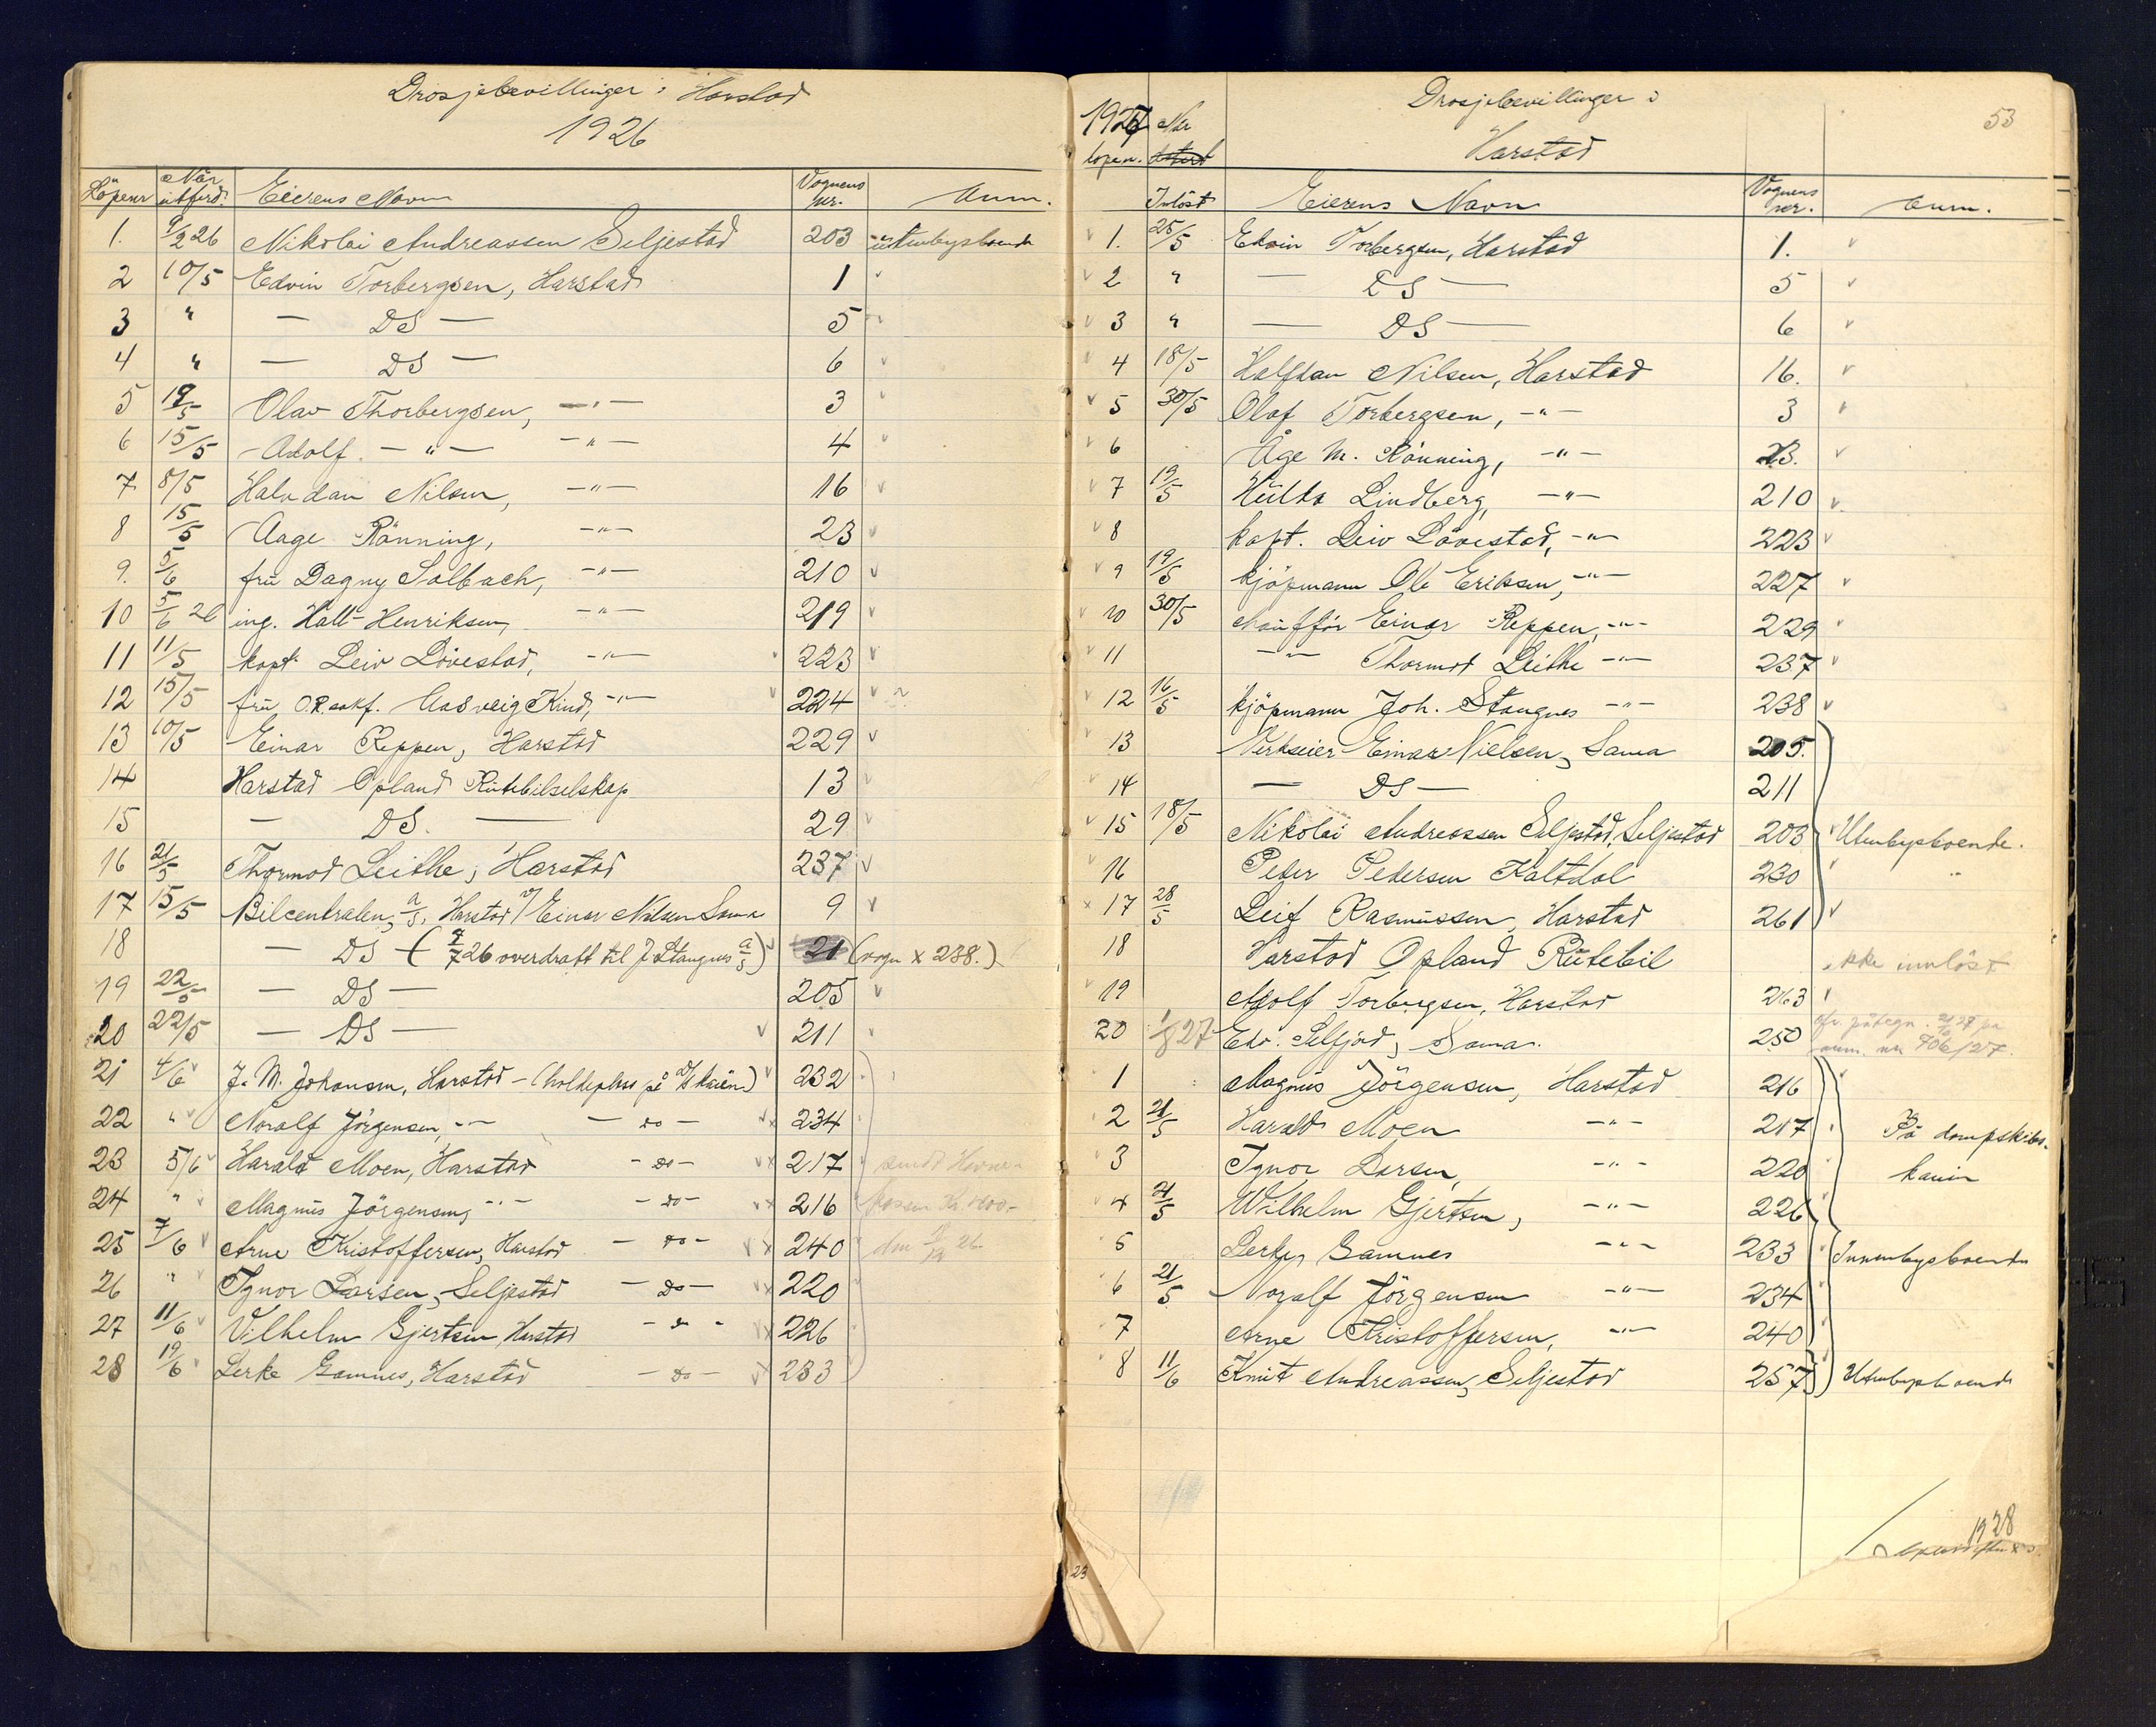 Drosjebevillinger i Harstad
1926
Löpenr Når utferd. Eierens Navn Vognens nr. Anm.
1. 9/2 26 Nikolai Andreassen Seljestad 203 utenbysboende
2 10/5 Edvin Torbergsen, Harstad 1 v
3 " — DS — 5 v
4 " — DS — 6 v
5 19/5 Olav Thorbergsen, —"— 3 v
6 15/5 Adolf —"— —"— 4 v
7 8/5 Halvdan Nilsen, —"— 16 v
8 15/5 Aage Rönning, —"— 23 v
9. 5/6 frü Dagny Solbach, —"— 210 v
10 5/6 26 ing. Hall-Henriksen, —"— 219 v
11 11/5 kapt. Leiv Lövestad, —"— 223 v
12 15/5 frü O.R.sakf. Aasveig Kind, —"— v 224 v
13 10/5 Einar Reppen, Harstad 229 v
14 Harstad Opland Rütebilselskap 13 v
15 — DS. — 29 v
16 21/5 Thormod Leithe, Harstad 237 v
17 15/5 Bilcentralen, a/s, Harstad v/ Einar Nilsen Sama 9 v
18 — DS — (9/7 26 overdratt til J. Stangnes a/s) v 21 (vogn x 238.)
19 22/5 — DS — 205 v
20 22/5 — DS — v 211 v
21 4/6 v J. M. Johansen, Harstad — (holdeplass på D/S kaien) v 232
22 " v Noralf Jörgensen, —"— — do — vx 234
23 5/6 v Harald Moen, Harstad — do — vx 217 sendt Havne-
24 " v Magnüs Jörgensen, —"— — do — vx 216 kassen Kr.
25 7/6 v Arne Kristoffersen, Harstad — do — vx 240 den 26
26 " v Ignor Larsen, Seljestad — do — vx 220
27 11/6 v Vilhelm Gjertsen, Harstad — do — vx 226
28 19/6 v Lerke Gamnes, Harstad — do — vx 233
Drosjebevillinger i
Harstad
53
1927 Når
löpen. Inlöst Eierens Navn Vognens nr. Anm.
v 1. 25/5 Edvin Torbergsen, Harstad 1. v
v 2 " — DS — 5 v
v 3 " — DS — 6 v
v 4 18/5 Halfdan Nilsen, Harstad 16. v
v 5 30/5 Olaf Torbergsen, —"— 3 v
v 6 Åge M. Rönning, —"— 23. v
v 7 19/5 Hülda Lindberg, —"— 210 v
v 8 kapt. Leiv Lövestad, —"— 223 v
v 9 19/5 kjöpmann Ole Eriksen, —"— 227 v
v 10 30/5 chaufför Einar Reppen, —"— 229 v
v 11 —"— Thormod Leithe —"— 237 v
v 12 16/5 kjöpmann Joh. Stangnes —"— 238 v
v 13 Verkseier Einar Nielsen, Sama 205.
v 14 — DS — 211
v 15 18/5 Nikolai Andreassen Seljestad, Seljestad 203 v Utenbysboende.
v 16 Peder Pedersen Kaltdal 230 v "
x 17 28/5 Leif Rasmüssen, Harstad 261 v
18 Harstad Opland Rütebil ikke innlöst
v 19 Adolf Torbergsen, Harstad 263 v
20 1/8 27 Edv. Selfjord, Sama. 250 cfr. påtegn. 2/6 27 på
anm. nr. 406/27.
1 Magnüs Jörgensen, Harstad 216
2 21/5 Harald Moen —"— 217 På dampskibs-
3 Ignor Larsen, —"— 220 kaien
4 21/5 Wilhelm Gjertsen, —"— 226
5 Lerke Gamnes —"— 233 Innenbysboende
6 21/5 Noralf Jörgensen —"— 234
7 Arne Kristoffersen, —"— 240
8 11/6 Knüt Andreassen, Seljestad 257 Utenbysboende
1928
23